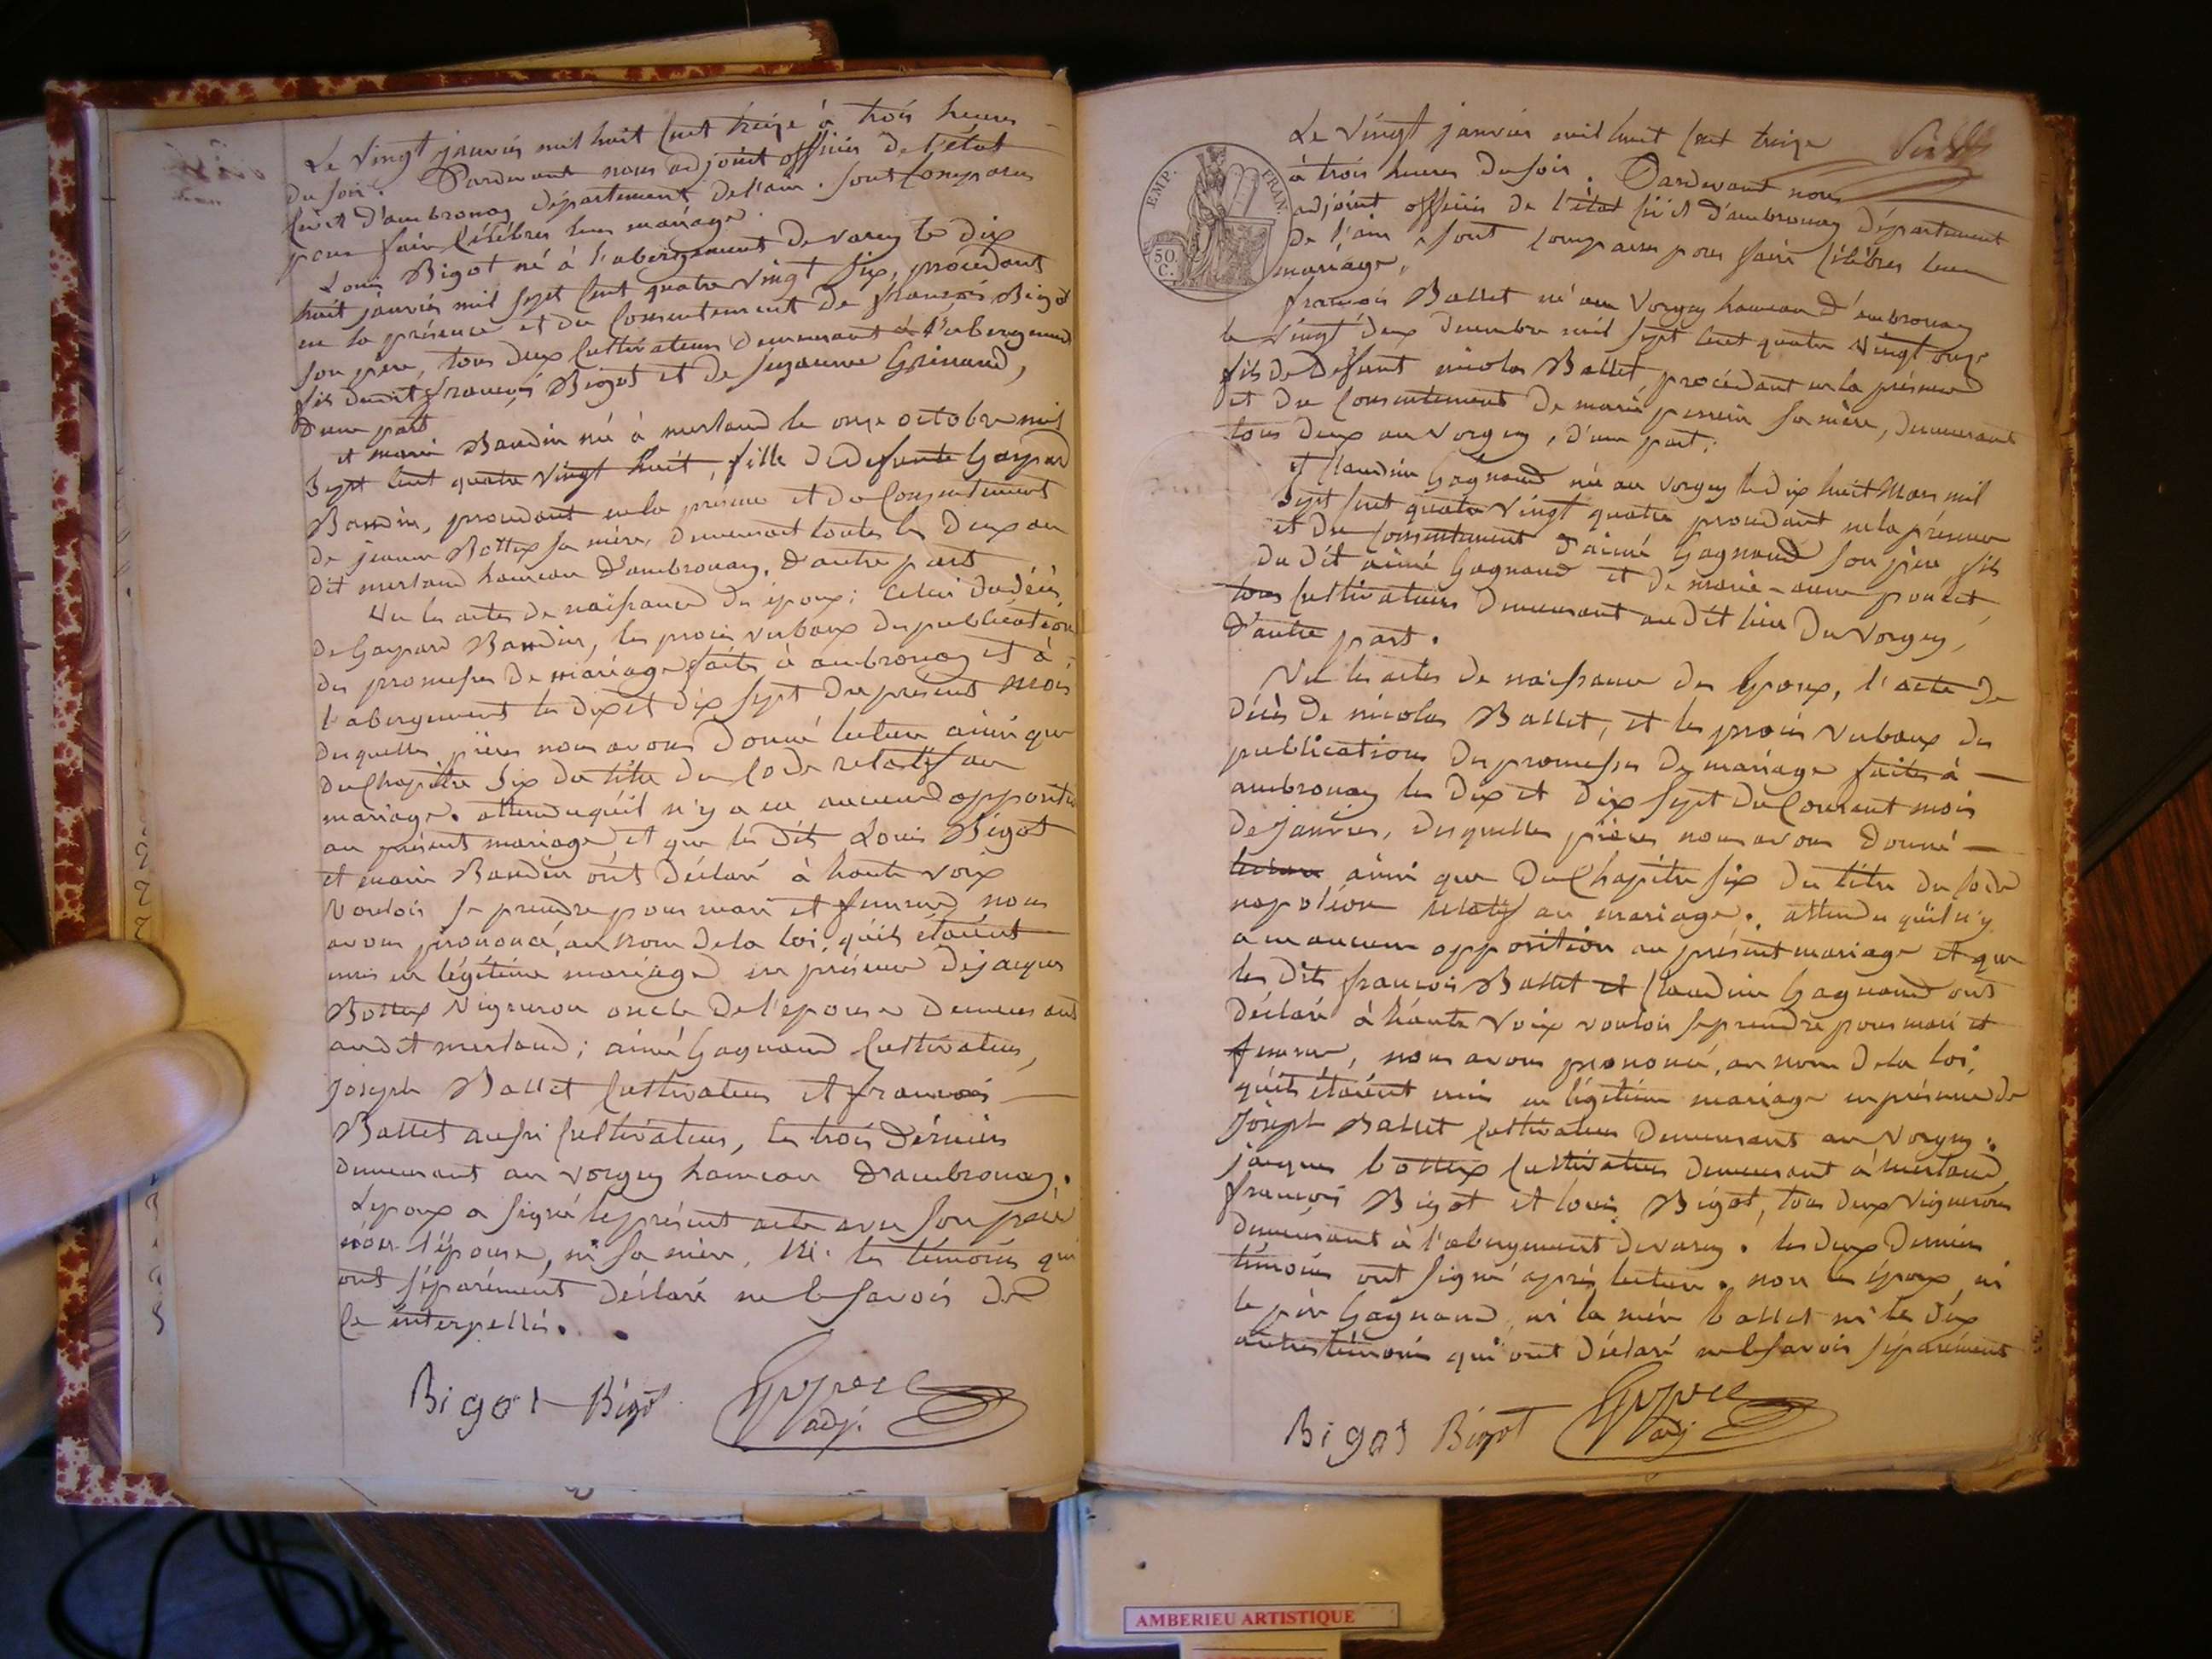 Le Vingt janvier mil huit Cent treize à trois heures
du soir. Pardevant nous adjoint officier de l'état
Civil d'ambronay département de l'ain. sont Comparus
pour faire Célébrer leur mariage.
Louis Bigot né à l'abergement de varey le dix
huit janvier mil sept Cent quatre Vingt six, procédant
en la présence et du Consentement de françois Bigot
son père, tous deux Cultivateurs demeurant à l'abergement
fils dudit françois Bigot et de suzanne Grinand,
d'une part
et marie Baudin née à merland le onze octobre mil
Sept Cent quatre Vingt huit, fille de defunte Gaspard
Baudin, procédant en la présence et du Consentement
de jeanne Bottex sa mère, demeurant toutes les deux au
dit merland hameau d'ambronay, d'autre part
Vu les actes de naissance des époux; Celui du décès
de Gaspard Baudin, les procès verbaux des publications
des promesses de mariage faites à ambronay et à
l'abergement les dix et dix sept du présent mois
desquelles pièces nous avons donné lecture ainsi que
du Chapitre Six du titre du Code relatif au
mariage. attendu qu'il n'y a eu aucune opposition
au présent mariage et que les dits Louis Bigot
et marie Baudin ont déclaré à haute voix
Vouloir se prendre pour mari et femme nous
avons prononcé, au nom de la loi, qu'ils étaient
unis en légitime mariage en présence de jacques
Bottex Vigneron oncle de l'épouse demeurant
audit merland; aimé Gagnand Cultivateur,
Joseph Ballet Cultivateur et françois
Ballet aussi Cultivateur, les trois derniers
demeurant au vorgey hameau d'ambronay.
L'epoux a signé le présent acte avec son père
non l'épouse, ni sa mère, ni les témoins qui
ont séparément déclaré ne le savoir de
Ce interpellés.
Bigot Bigot adj.
Le Vingt janvier mil huit Cent treize
à trois heures du soir. Pardevant nous
adjoint officier de l'état Civil d'ambronay département
de l'ain, sont Comparus pour faire Célébrer leur
mariage,
EMP. FRAN.
50 C.
françois Ballet né au Vorgey hameau d'ambronay
le Vingt deux decembre mil sept Cent quatre Vingt onze
fils de defunt nicolas Ballet, procédant en la présence
et du Consentement de marie perrin sa mère, demeurant
tous deux au Vorgey, d'une part;
et Claudine Gagnand née au vorgey le dix huit Mars mil
Sept Cent quatre Vingt quatre procédant en la présence
et du Consentement d'aimé Gagnand son père fils
du dit aimé Gagnand et de marie-anne
tous Cultivateurs demeurant audit lieu du Vorgey,
d'autre part.
Vu les actes de naissance des Epoux, l'acte de
décès de nicolas Ballet, et les procès verbaux des
publications des promesses de mariage faites à
ambronay les dix et dix sept du Courent mois
de Janvier, desquelles pièces nous avons donné
lecture ainsi que du Chapitre six du titre du Code
napoléon relatif au mariage. attendu qu'il n'y
a eu aucune opposition au présent mariage et que
les dits françois Ballet et Claudine Gagnand ont
déclaré à haute Voix vouloir se prendre pour mari et
femme, nous avons prononcé, au nom de la loi,
qu'ils étaient unis en légitime mariage en présence de
Joseph Ballet Cultivateur demeurant au Vorgey.
jacques bottex Cultivateur demeurant à merland,
françois Bigot et louis Bigot, tous deux Vignerons
demeurant à l'abergement de varey. les deux derniers
témoins ont signé après lecture. non les époux, ni
le père Gagnand, ni la mère ballet ni les deux
autres témoins qui ont déclaré ne le savoir séparément
Bigot Bigot adj
AMBERIEU ARTISTIQUE